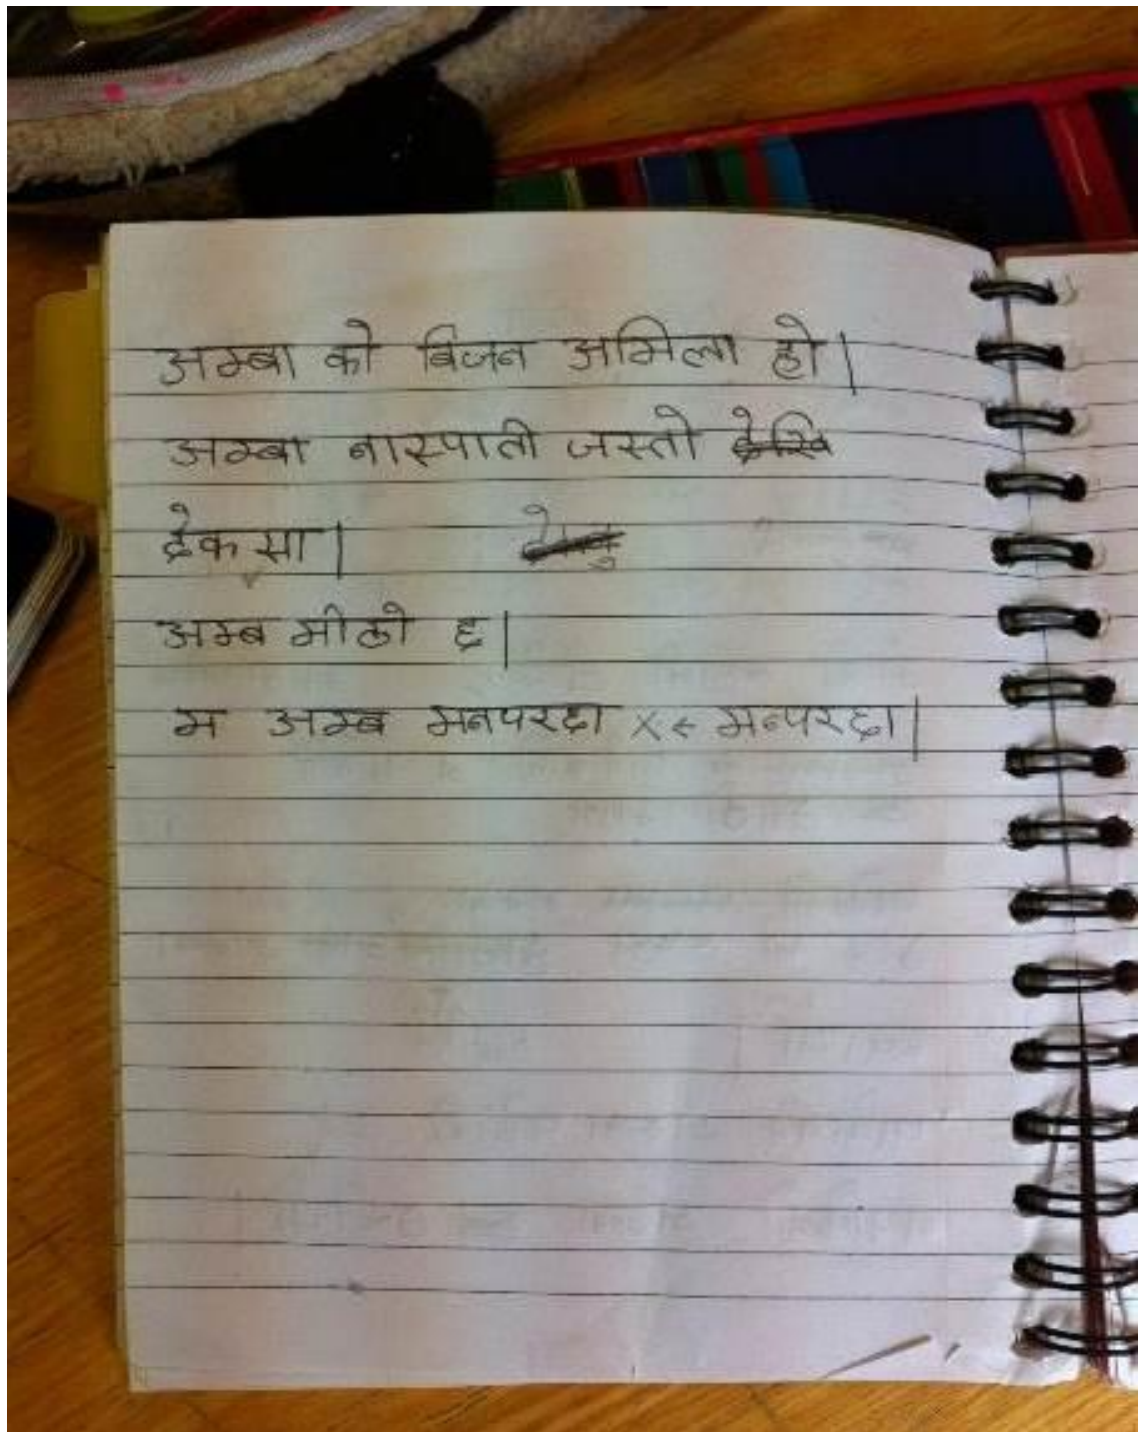 अम्बा को बिजन अमिला हो।
अम्बा नास्पाती जस्तो देखि
देक सा।
अम्ब मीठो छ।
म अम्ब मनपरदा X ← मन्परदा।